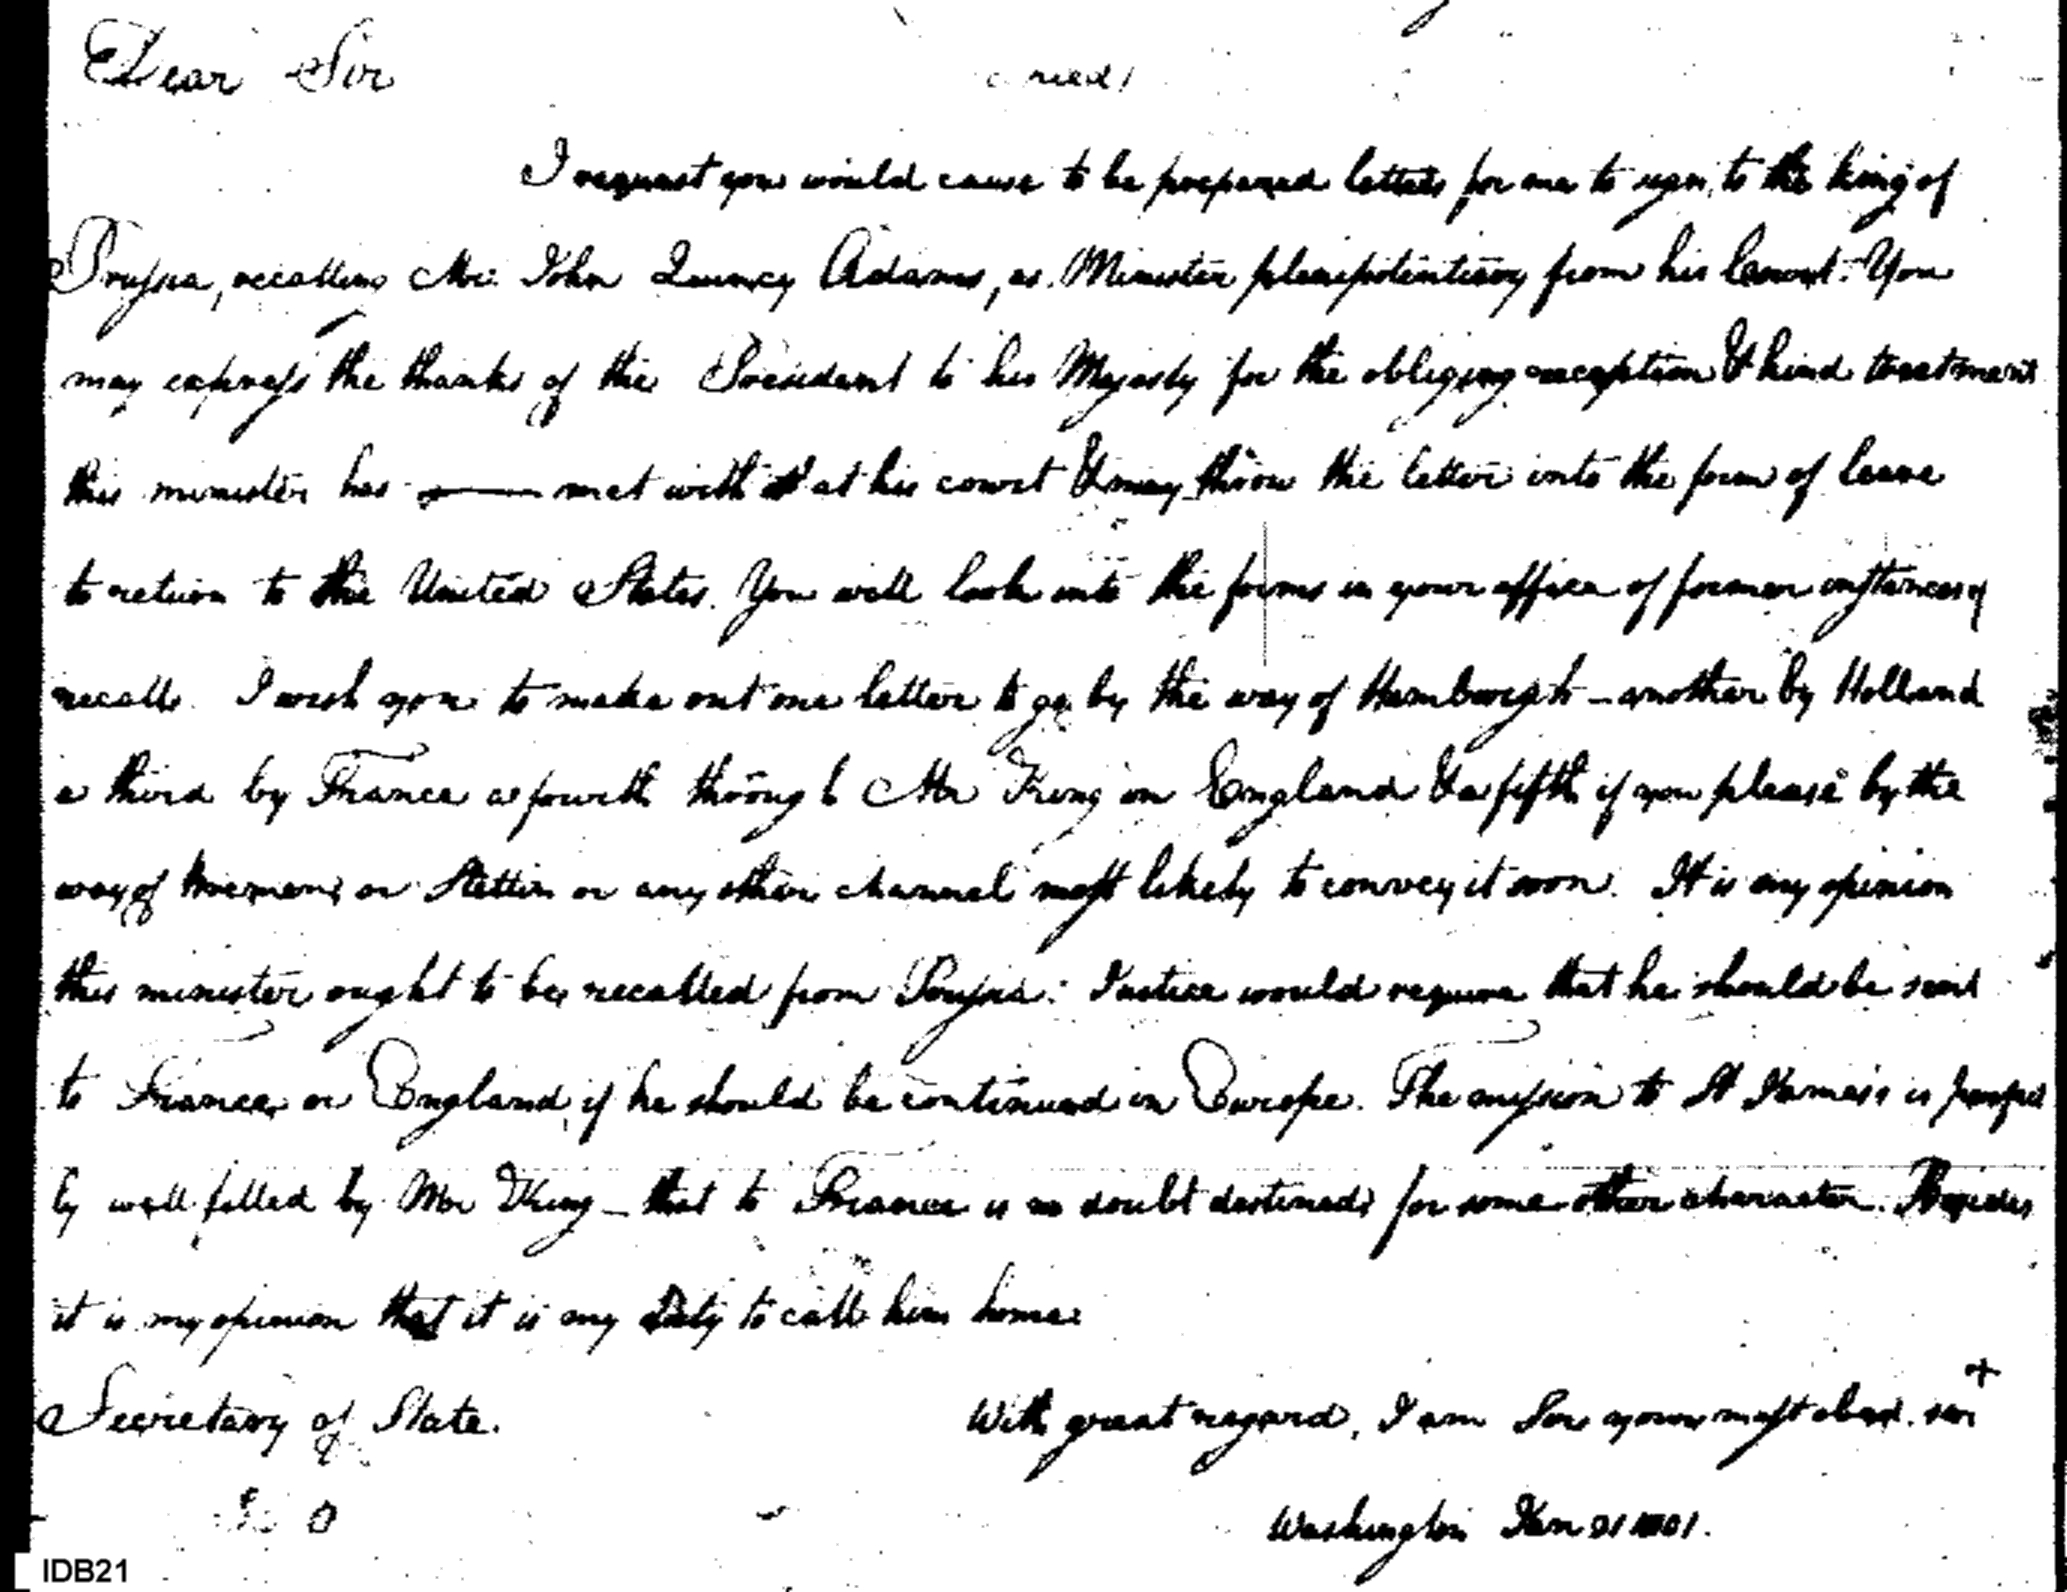 Dear Sir
I request you would cause to be prepared letters for me to sign, to the King of
Prussia, recalling Mr. John Quincy Adams, as Minister plenipotentiary from his Court. You
may express the thanks of the President to his Majesty for the obliging reception & kind treatment
this minister has met with at his court & may throw the letter into the form of leave
to return to the United States. You will look into the forms in your office of former instances of
recall. I wish you to make out one letter to go by the way of Hamburgh – another by Holland
a third by France a fourth through Mr King in England & a fifth if you please by the
way of Bremen or Stettin or any other channel most likely to convey it soon. It is my opinion
this minister ought to be recalled from Prussia. Justice would require that he should be sent
to France or England, if he should be continued in Europe. The mission to St James's is perfect
ly well filled by Mr King – that to France is no doubt destined for some other character. Besides
it is my opinion that it is my Duty to call him home.
Secretary of State.
With great regard, I am Sir your most obed. ser
Washington Jan 31 1801.
IDB21